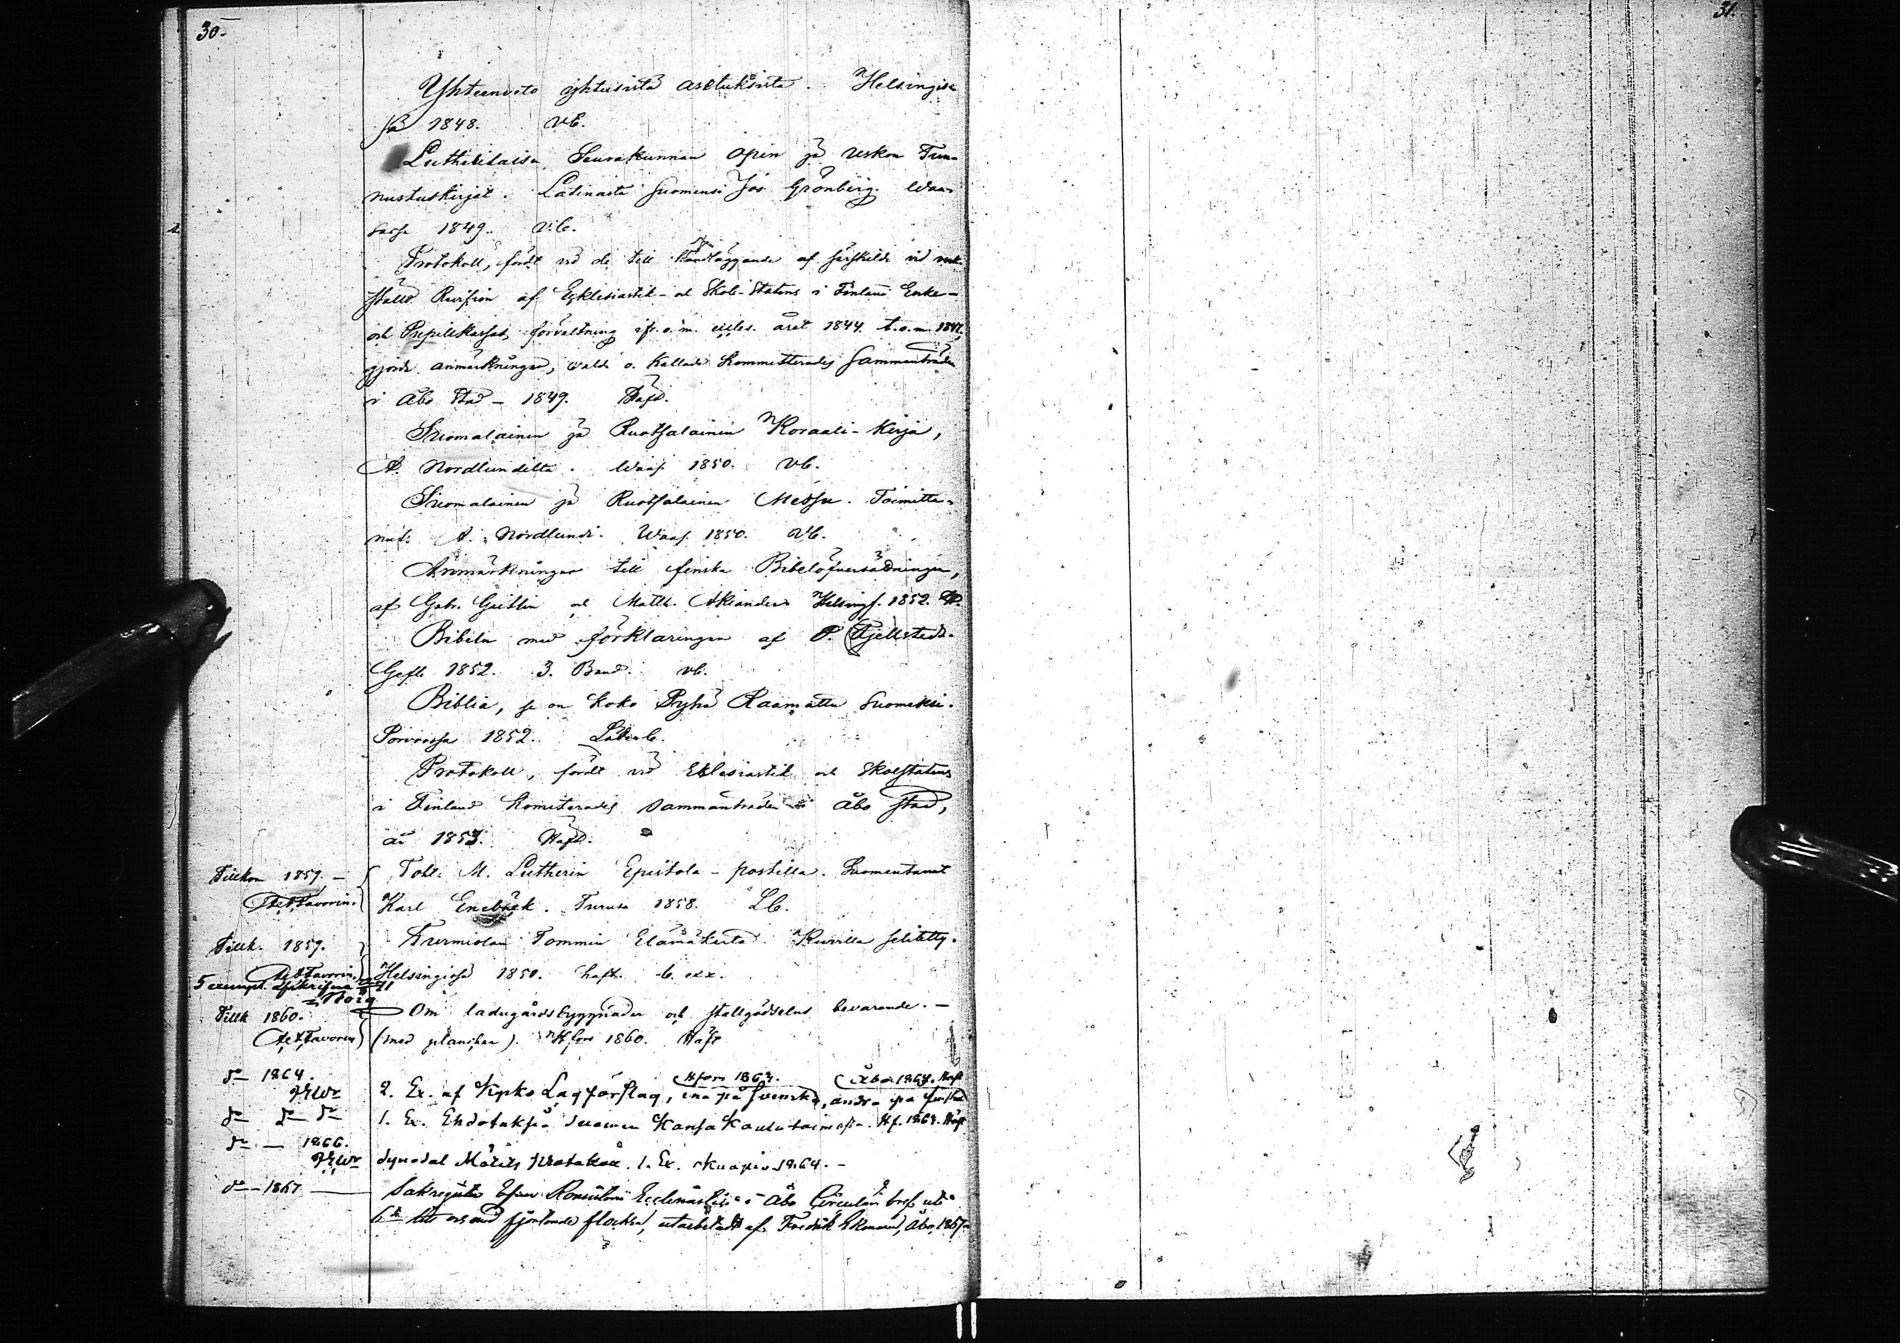 30.
31.
Yhteenveto yhtusista asetuksista. Helsingis
sä 1848. vb.
Lutherilaisen Seurakunnan opin ja uskon Tun-
nustuskirjat. Latinasta suomensi Jos Grönberg. Waa-
sassa 1849. vb.
Protokoll, fördt vid de till handläggande af särskilde vid verk-
ställd Revision af Ecklesiastik- och Skol-Statens i Finland Enke-
och Pupillkassas förvaltning ifr. o. m. eccles. året 1844 t. o. m. 1847,
gjorde anmärkningar, valde o. kallade Kommitterades sammanträde
i Åbo Stad - 1849. Häft.
Suomalainen ja Ruotsalainen Koraali-Kirja,
A. Nordlundilta. Waas. 1850. vb.
Suomalainen ja Ruotsalainen Messu. Toimitta-
nut A. Nordlund. Waas. 1850. vb.
Anmärkningar till finska Bibelöfversättningen,
af Gabr. Geitlin och Matth. Akiander Helsingf. 1852.
Bibeln med förklaringar af P. Fjellstedt.
Gefle 1852. 3. Band. vb.
Biblia, se on Koko Pyhä Raamattu Suomeksi.
Porvoossa 1852. Läderb.
Protokoll, fördt vid Eklesiastik och Skolstatens
i Finland Komiterades sammanträde i Åbo stad,
år 1853. Häft.
Tillkom 1859. - Toht. M. Lutherin Epistola-postilla. Suomentanut
Act. Favorin. Karl Enebäck. Turusa 1858. Lb.
Tillk. 1859. Turmiolan Tommin Elämäkerta. Kuvilla selitetty.
Act. Favorin. Helsingissä 1850. häft. 6. exx.
5 exempl. afskrifna
Tillk 1860. Om ladugårdsbyggnader och stallgödselns bevarande. -
Act. Favorin (med plancher). Hfors 1860. Häft
do 1864. Hfors 1863. Åbo 1864. Häft
2. Ex. af Kyrko Lag förslag, ena på svenska, andra på finska
do do do 1. Ex. Ehdotuksia Suomen Kansa Koulutoimesta. Hf. 1863. Häft
do - 1866.
Synodal Mötets Protokoll. 1. Ex. Kuopio 1864. -
do - 1867 Sakregister öfver Konsistorii Ecclesiastici i Åbo Circulär bref uti
6te till och med fjortonde flocken, utarbetadt af Fredrik Ekman, Åbo, 1867.